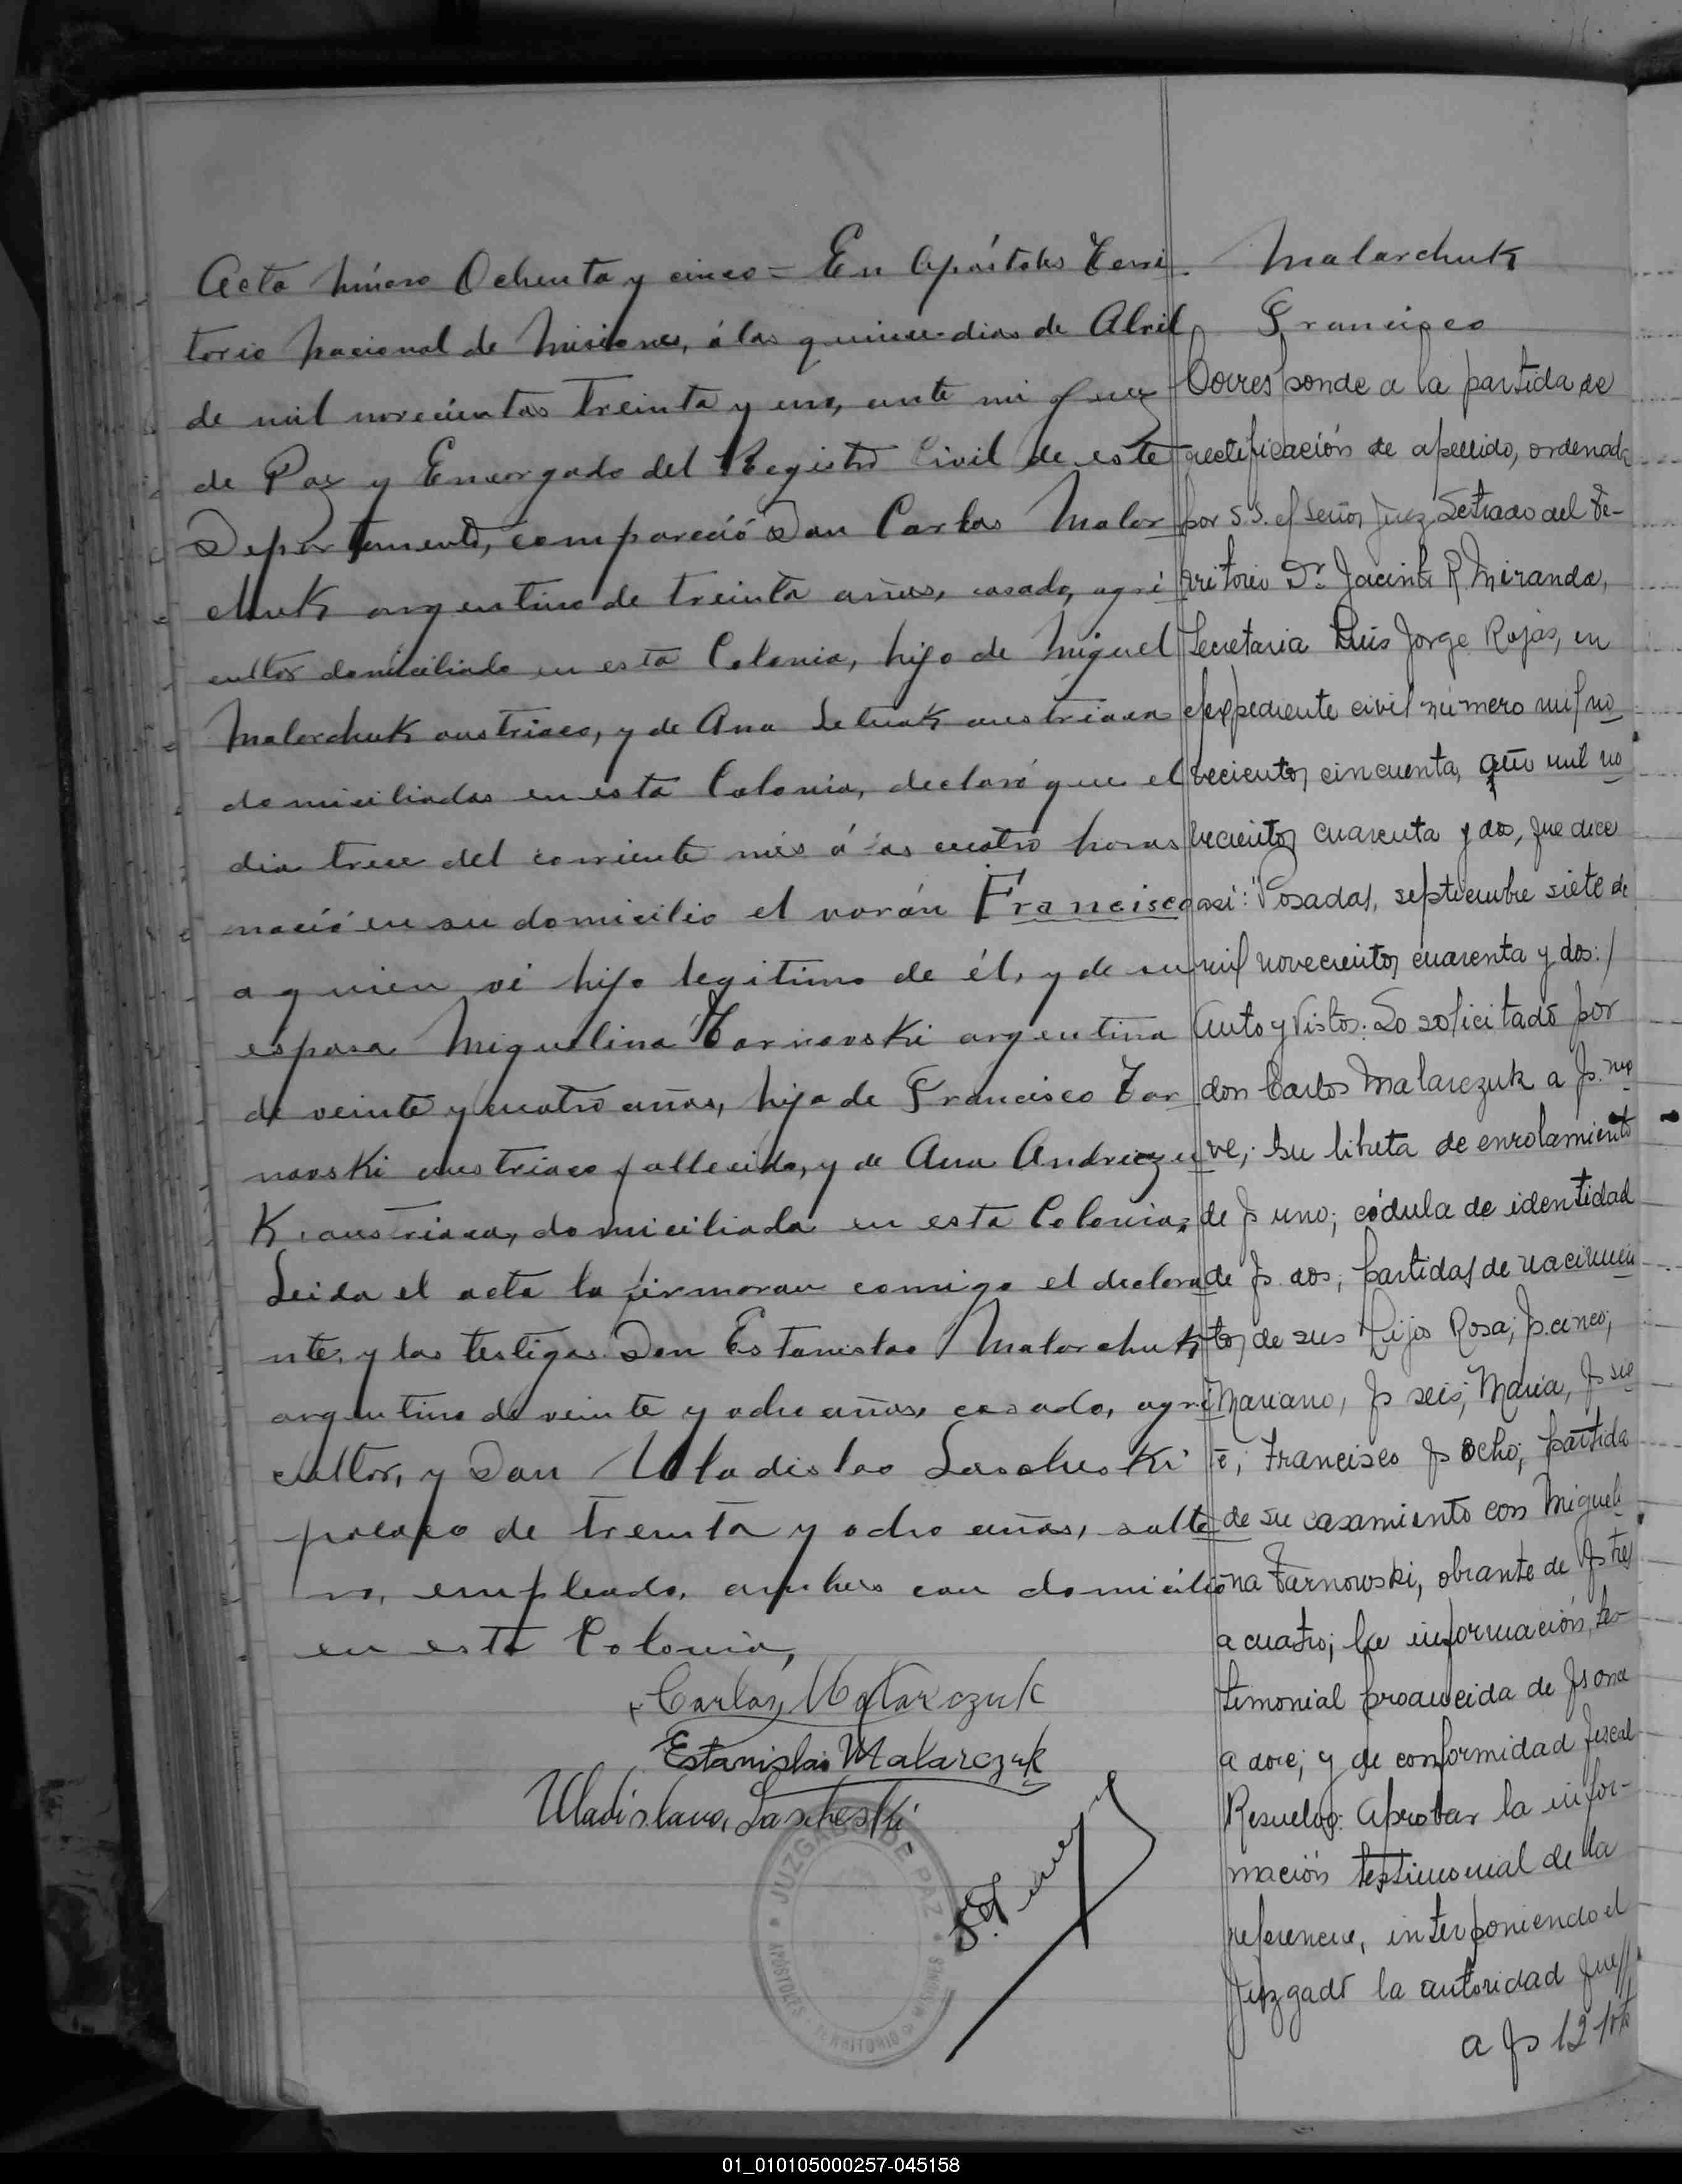 Acta número Ochenta y cinco = En Apóstoles Terri
torio nacional de Misiones, á los quince dias de Abril
de mil novecientos treinta y uno, ante mi Juez
de Paz y Encargado del Registro Civil de este
Departamento, compareció Don Carlos Malar
chuk argentino de treinta años, casado, agri
cultor domiciliado en esta Colonia, hijo de Miguel
Malarchuk austriaco, y de Ana austriaca
domiciliados en esta Colonia, declaró que el
dia trece del corriente mes á las cuatro horas
nació en su domicilio el varón Francisco
a quien vi hijo legitimo de él, y de su
esposa Miguelina Tarnovski argentina
de veinte y cuatro años, hija de Francisco Tar
novski austriaco fallecido, y de Ana Andreczu
k austriaca, domiciliada en esta Colonia.
Leida el acta la firmaron comigo el declara
nte, y los testigos Don Estanislao Malarchuk
argentino de veinte y ocho años, casado, agri
cultor, y Don Uladislao Lascheski
polaco de treinta y ocho años, solte
ro, empleado, ambos con domicilio
en esta Colonia,
Carlos Malarczuk
Estanislao Malarczuk
Uladislavo Lascheski
JUZGADO DE PAZ
APOSTOLES - TERRITORIO DE MISIONES
Malarchuk
Francisco
Corresponde a la partida de
rectificación de apellido, ordenada
por S.S. el señor Juez Letrado del Te-
rritorio Dr. Jacinto R. Miranda,
Secretaria Luis Jorge Rojas, en
el expediente civil número mil no
vecientos cincuenta, año mil no
vecientos cuarenta y dos, que dice
asi: "Posadas, septiembre siete de
mil novecientos cuarenta y dos:/
Auto y Vistos: Lo solicitado por
don Carlos Malarczuk a fs. nue
ve; su libreta de enrolamiento
de fs uno; cédula de identidad
de fs. dos; partidas de nacimien
tos de sus hijos Rosa, fs. cinco;
Mariano, fs seis; Maria, fs sie
te; Francisco fs ocho; partida
de su casamiento con Migueli
na Tarnowski, obrante de fs tres
a cuatro; la información tes-
timonial producida de fs once
a doce; y de conformidad fiscal
Resuelvo: Aprobar la infor-
mación testimonial de la
referencia, interponiendo el
Juzgado la autoridad que//
a fs 12 vta
01_010105000257-045158